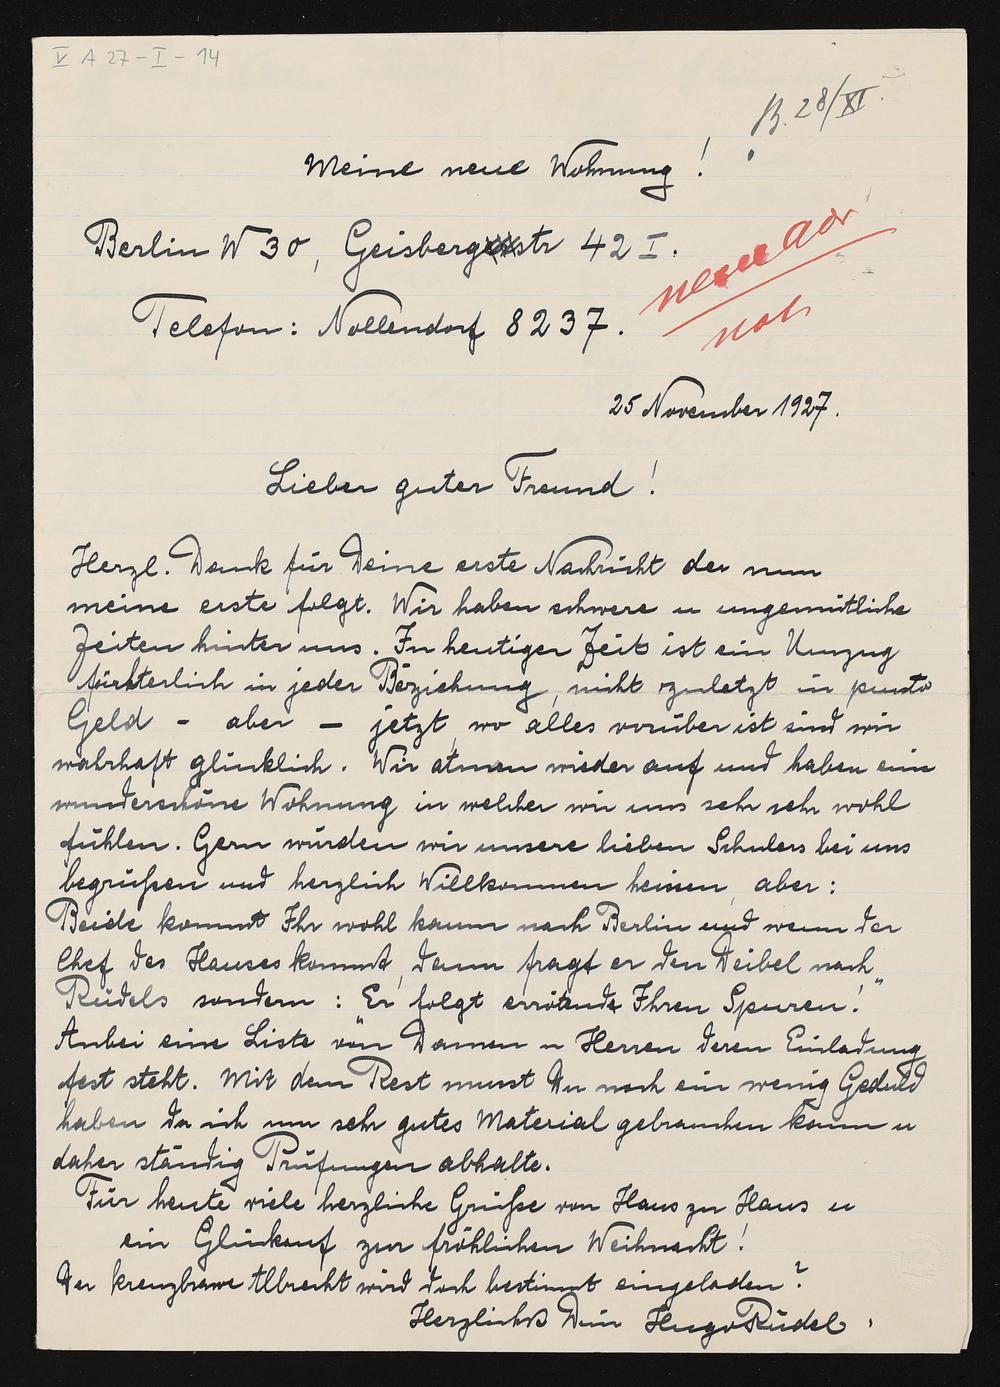 V A 27-I-14
B. 28/XI.
Meine neue Wohnung!
Berlin W 30, Geisbergstr 42 I.
neue Adr
not.
Telefon: Nollendorf 8237.
25 November 1927.
Lieber guter Freund!
Herzl. Dank für Deine erste Nachricht der nun
meine erste folgt. Wir haben schwere u ungemütliche
Zeiten hinter uns. In heutiger Zeit ist ein Umzug
fürchterlich in jeder Beziehung, nicht zuletzt in puncto
Geld - aber - jetzt, wo alles vorüber ist sind wir
wahrhaft glücklich. Wir atmen wieder auf und haben eine
wunderschöne Wohnung in welcher wir uns sehr sehr wohl
fühlen. Gern würden wir unsere lieben Schulers bei uns
begrüßen und herzlich Willkommen heissen, aber:
Beide kommt Ihr wohl kaum nach Berlin und wenn der
Chef des Hauses kommt, dann fragt er den Deibel nach
Rüdels sondern: "Er folgt errötend Ihren Spuren!"
Anbei eine Liste von Damen u Herren deren Einladung
fest steht. Mit dem Rest musst Du noch ein wenig Geduld
haben da ich nur sehr gutes Material gebrauchen kann u
daher ständig Prüfungen abhalte.
Für heute viele herzliche Grüße von Haus zu Haus u
ein Glückauf zur fröhlichen Weihnacht!
Der kreuzbrave Albrecht wird doch bestimmt eingeladen?
Herzlichst Dein Hugo Rüdel.